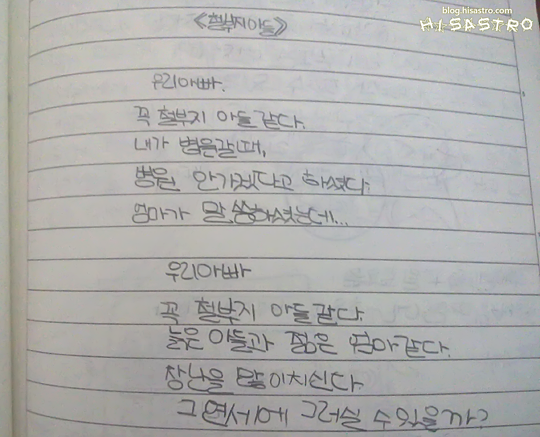 blog.hisastro.com
HISASTRO
《철부지아들》
우리아빠.
꼭 철부지 아들 같다.
내가 병원갈때,
병원 안가겠다고 하셨다.
엄마가 말씀하셨는데...
우리아빠
꼭 철부지 아들같다.
늙은 아들과 젊은 엄마같다.
장난을 많이치신다.
그 연세에 그러실 수 있을까?